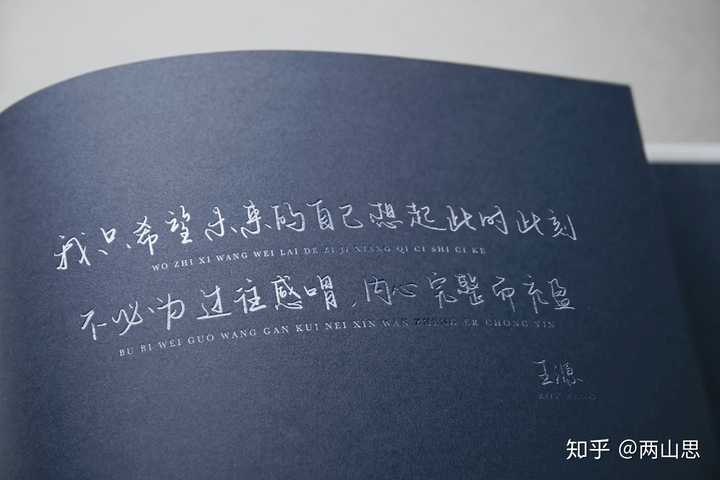 我只希望未来的自己想起此时此刻
WO ZHI XI WANG WEI LAI DE ZI JI XIANG QI CI SHI CI KE
不必为过往感喟，内心完整而充盈
BU BI WEI GUO WANG GAN KUI NEI XIN WAN ZHENG ER CHONG YIN
王源
知乎 @两山思